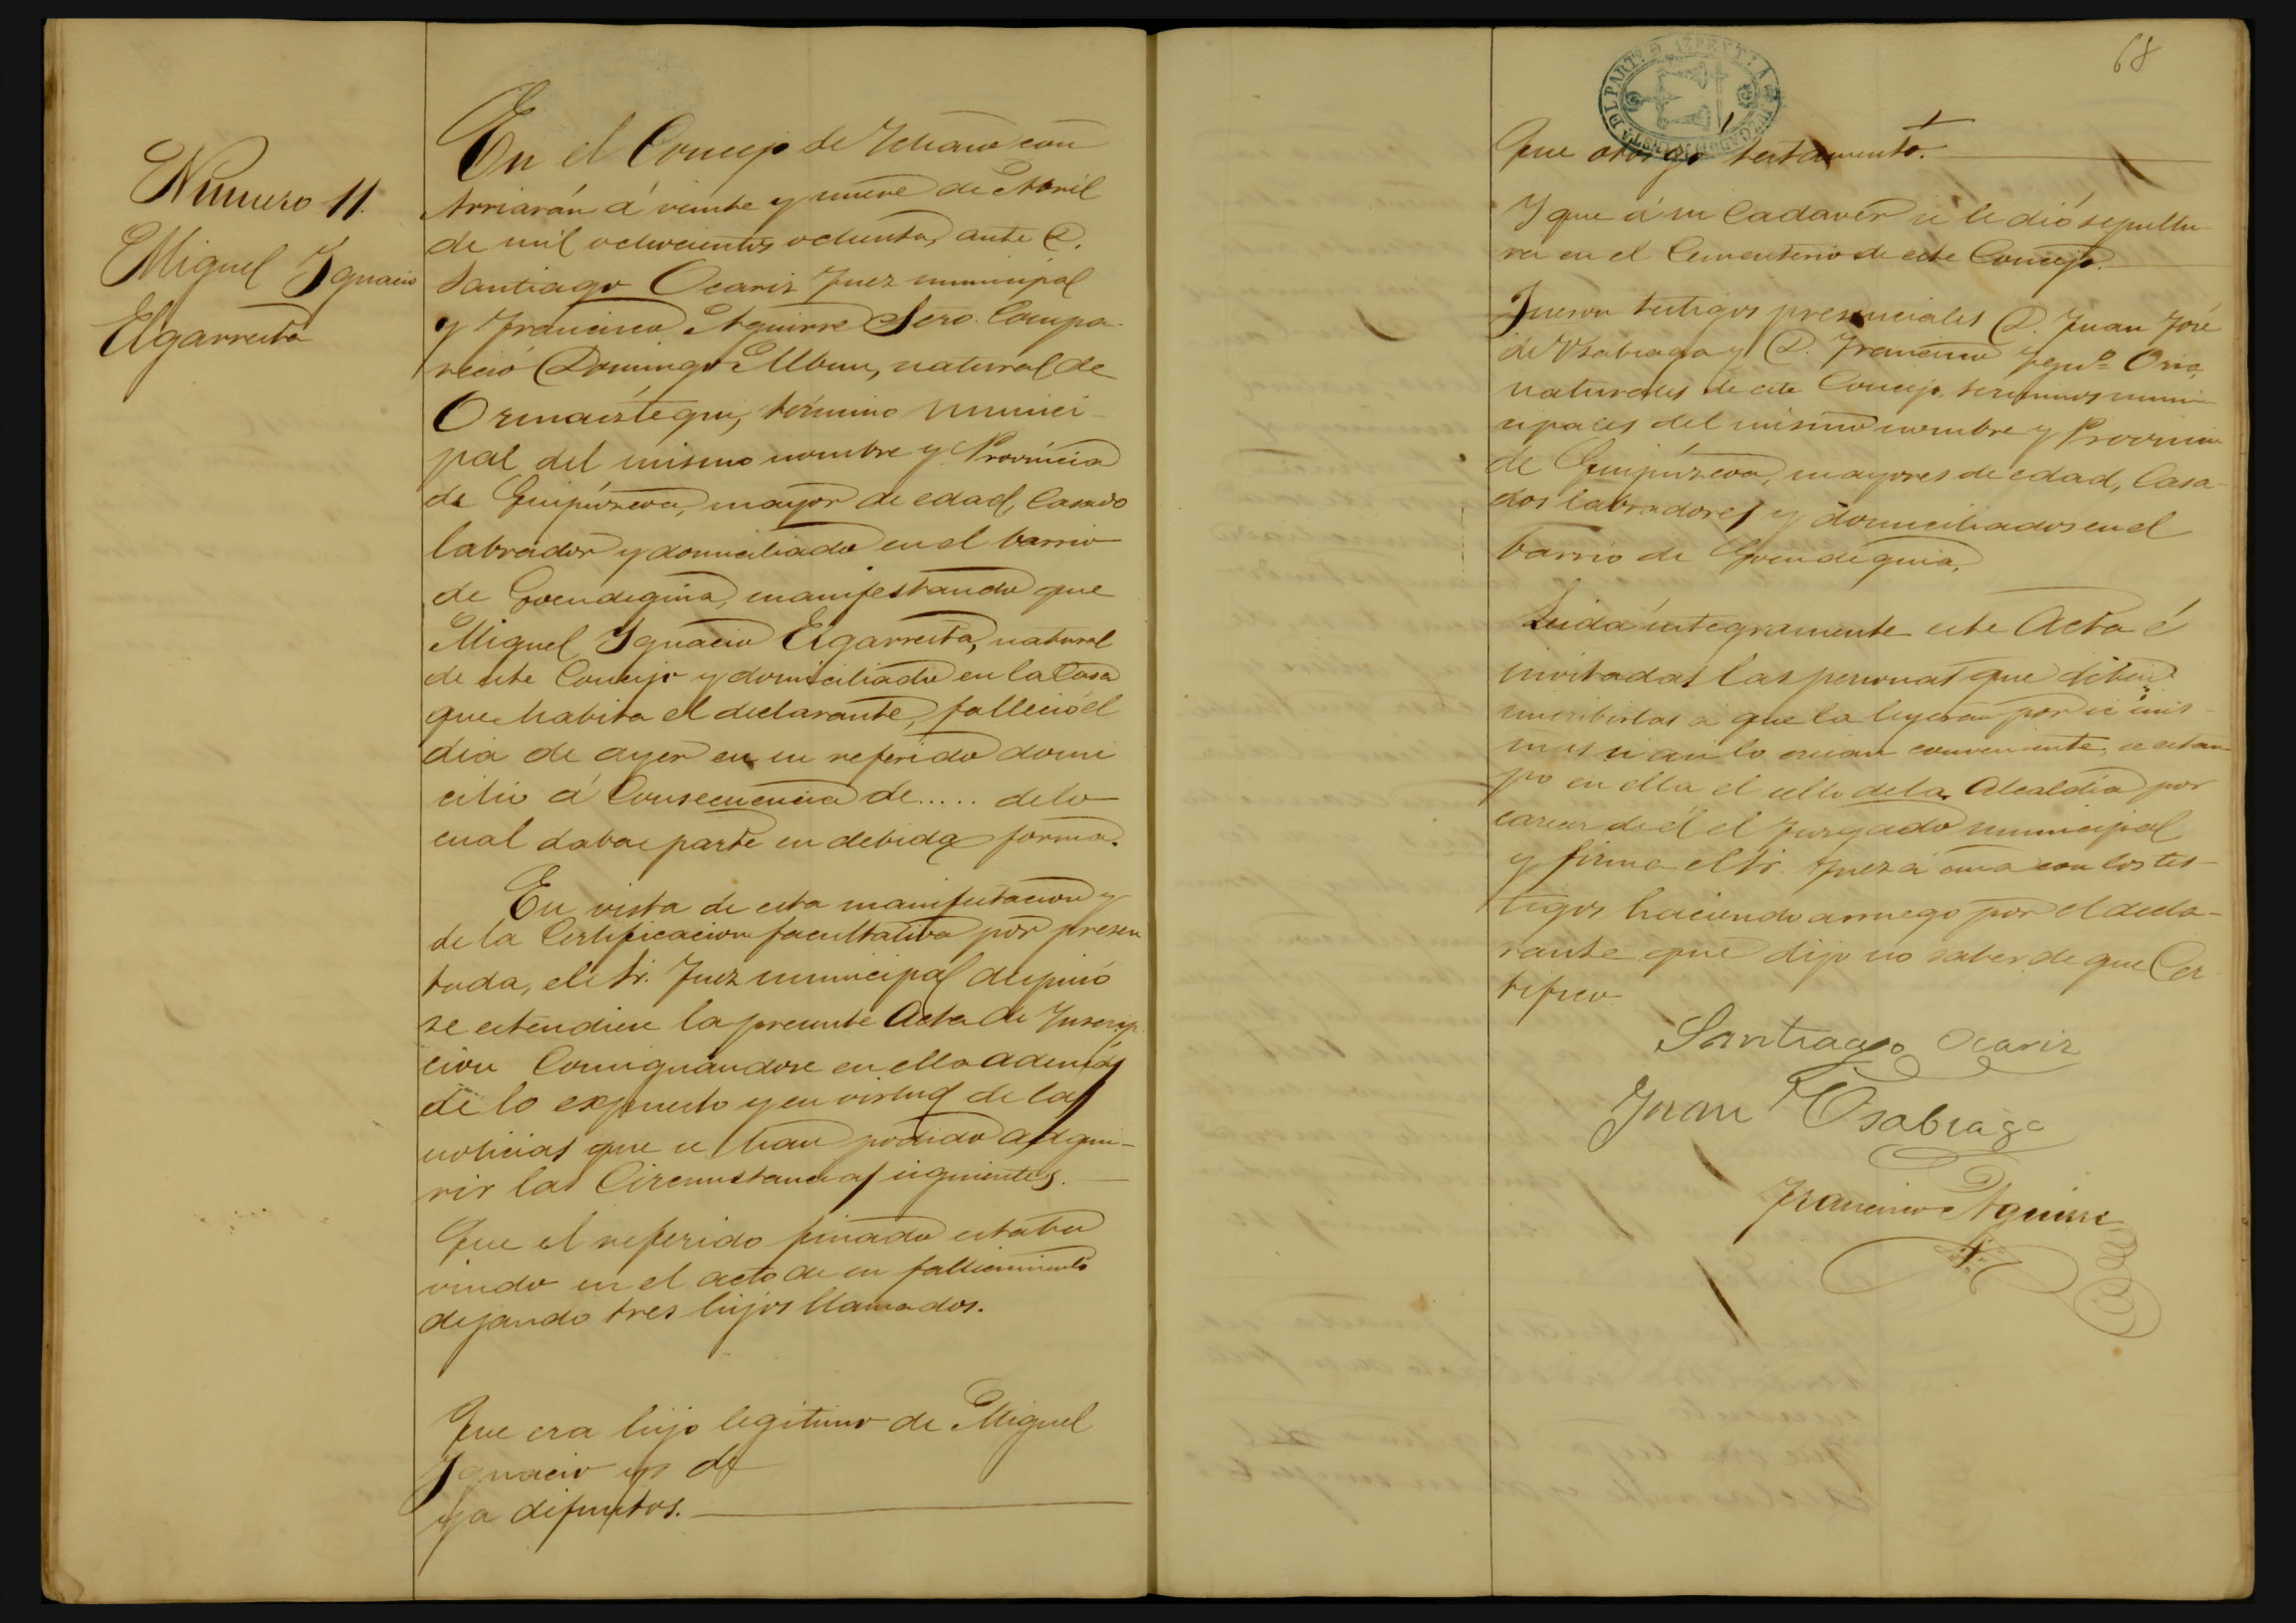 Numero 11.
Miguel Ignacio
Elgarresta
En el Concejo de Ichaso con
Arriarán á veinte y nueve de Abril
de mil ochocientos ochenta, ante D.
Santiago Ocariz Juez municipal
y Francisco Aguirre Srio. Compa-
reció Domingo Albun, natural de
Ormaiztegui, término munici-
pal del mismo nombre y Provincia
de Guipúzcoa, mayor de edad, Casado
labrador y domiciliado en el barrio
de Goendeguia, manifestando que
Miguel Ignacio Elgarresta, natural
de este Concejo y domiciliado en la Casa
que habita el declarante, falleció el
dia de ayer en su referido domi
cilio á Consecuencia de..... de lo
cual daba parte en debida forma.
En vista de esta manifestacion y
de la Certificacion facultativa por presen
tada, el Sr. Juez municipal dispuso
se estendiese la presente Acta de Inscrip
cion Consignandose en ella además
de lo expuesto y en virtud de las
noticias que se han podido adqui-
rir las Circunstancias siguientes.
Que el referido finado estaba
viudo en el acto de su fallecimiento
dejando tres hijos llamados.
Que era hijo legitimo de Miguel
Ignacio y de
ya difuntos.
68
Que otorgó testamento.
Y que á su Cadaver se le dió sepultu-
ra en el Cementerio de este Concejo.
Fueron testigos presenciales D. Juan José
de Usabiaga y D. Francisco Oria,
naturales de este Concejo, terminos muni-
cipales del mismo nombre y Provincia
de Guipúzcoa, mayores de edad, Casa-
dos labradores y domiciliados en el
barrio de Goendeguia,
Leida íntegramente este Acta é
invitadas las personas que deben
suscribirlas á que la leyeran por si mis-
mas si asi lo creian conveniente, se estam
pó en ella el sello de la Alcaldia por
carecer de él el Juzgado municipal
y firma el Sr. Juez á una con los tes-
tigos haciendo a ruego por el decla-
rante que dijo no saber de que Cer
tifico
Santiago Ocariz
Juan Usabiaga
Francisco Aguirre